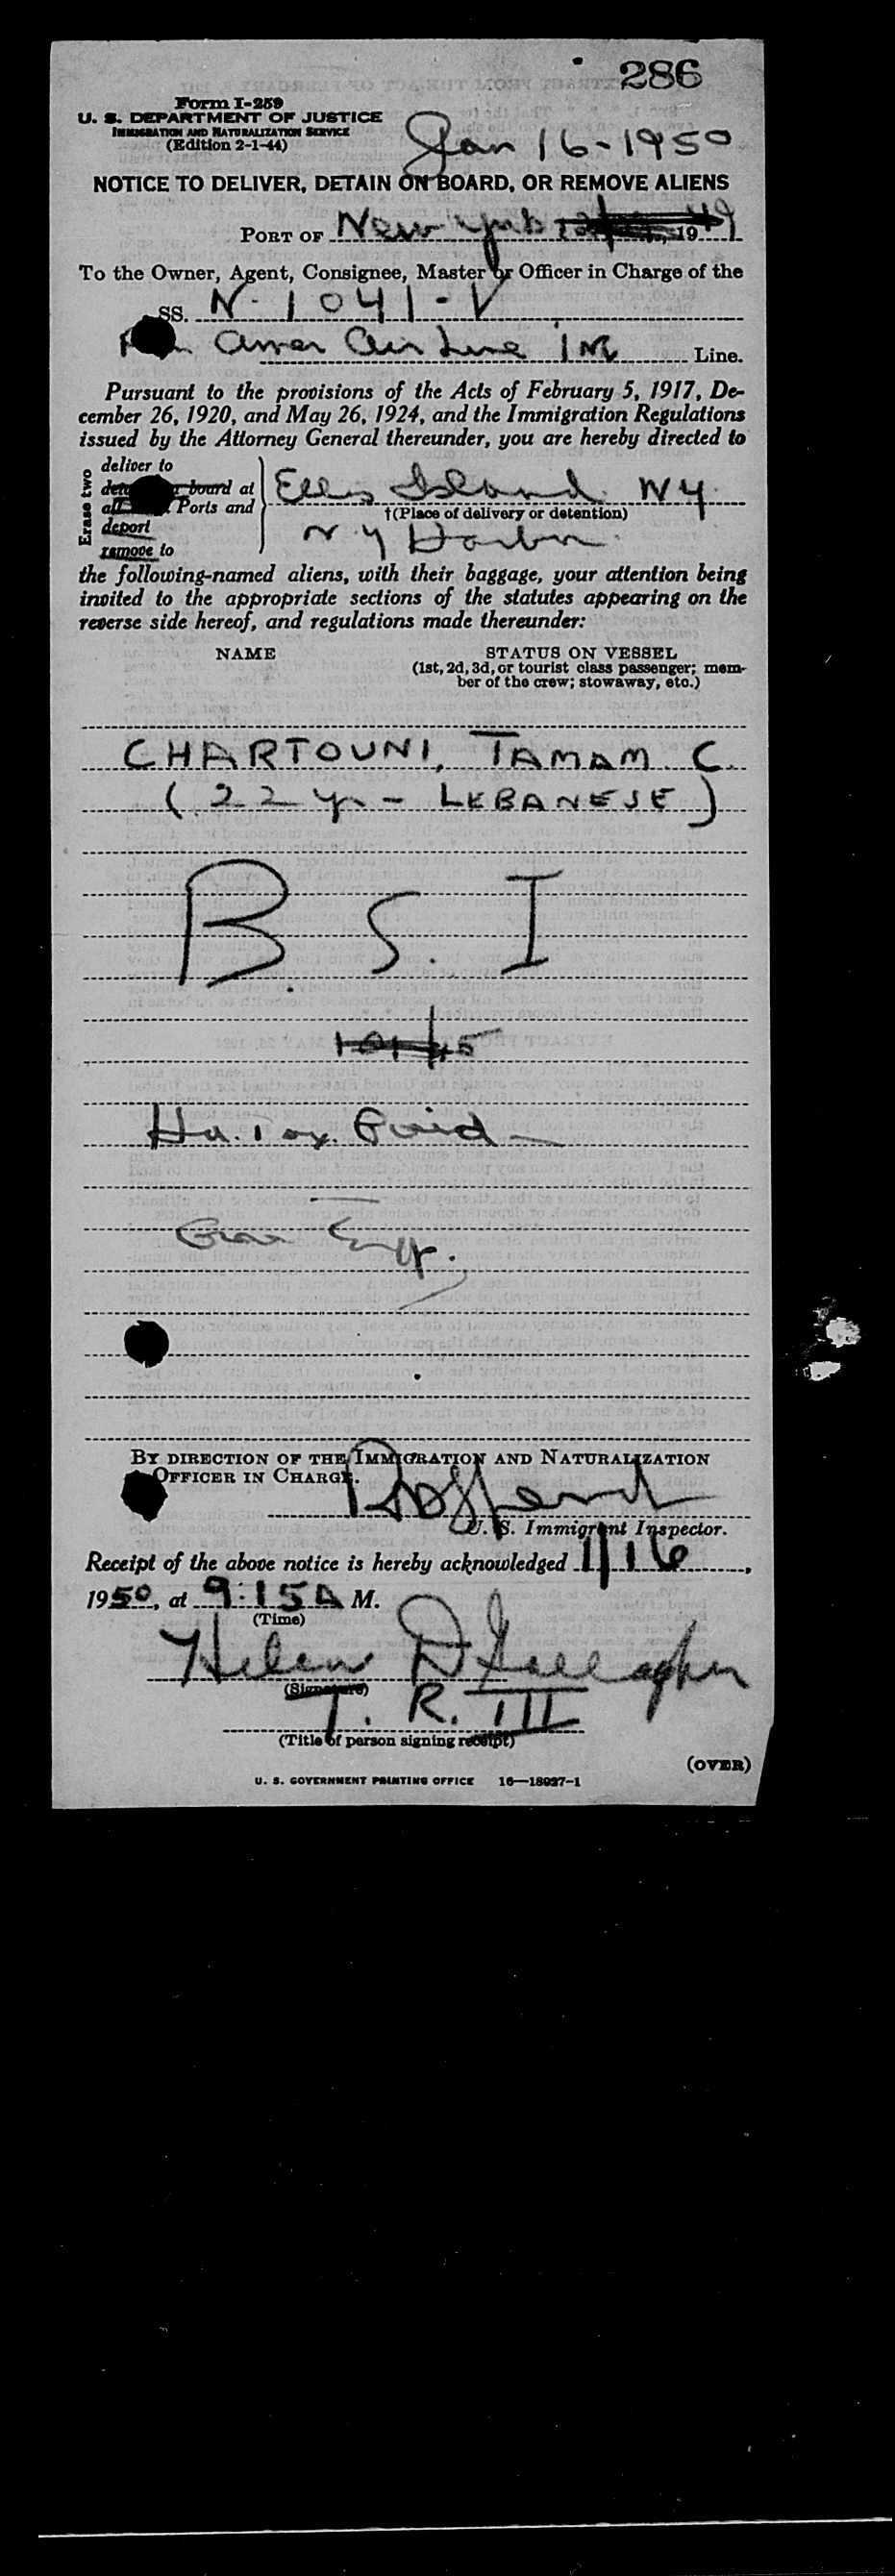 286
Form I-259
U. S. DEPARTMENT OF JUSTICE
IMMIGRATION AND NATURALIZATION SERVICE
(Edition 2-1-44)
Jan 16-1950
NOTICE TO DELIVER, DETAIN ON BOARD, OR REMOVE ALIENS
PORT OF New York 1949
To the Owner, Agent, Consignee, Master or Officer in Charge of the
SS. N-1041-V
Amer Air Line Inc Line.
Pursuant to the provisions of the Acts of February 5, 1917, De-
cember 26, 1920, and May 26, 1924, and the Immigration Regulations
issued by the Attorney General thereunder, you are hereby directed to
Erase two
deliver to
board at
all Ports and
deport
remove to
Ellis Island NY
†(Place of delivery or detention)
N Y Harbor
the following-named aliens, with their baggage, your attention being
invited to the appropriate sections of the statutes appearing on the
reverse side hereof, and regulations made thereunder:
NAME STATUS ON VESSEL
(1st, 2d, 3d, or tourist class passenger; mem-
ber of the crew; stowaway, etc.)
CHARTOUNI, TAMAM C.
(22 yr - LEBANESE)
B. S. I
Hd. Tax. Paid
BY DIRECTION OF THE IMMIGRATION AND NATURALIZATION
OFFICER IN CHARGE.
U. S. Immigrant Inspector.
Receipt of the above notice is hereby acknowledged 1/16,
1950, at 9:15 A M.
(Time)
Helen D Gallagher
(Signature)
T. R. III
(Title of person signing receipt)
(OVER)
U. S. GOVERNMENT PRINTING OFFICE 16—18027-1